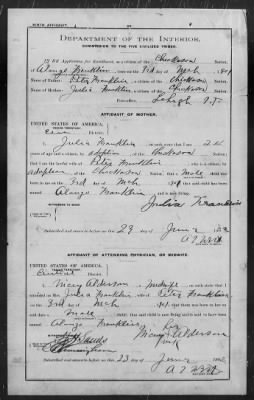 BIRTH AFFIDAVIT.
DEPARTMENT OF THE INTERIOR.
COMMISSION TO THE FIVE CIVILIZED TRIBES.
IN RE Application for Enrollment, as a citizen of the Chickasaw Nation,
of Alonzo Franklin, born on the 3rd day of Mch, 190
Name of Father: Peter Franklin a citizen of the Chickasaw Nation.
Name of Mother: Julia Franklin a citizen of the Chickasaw Nation.
Postoffice Lehigh I.T.
AFFIDAVIT OF MOTHER.
UNITED STATES OF AMERICA,
INDIAN TERRITORY,
District.
I, Julia Franklin, on oath state that I am
years of age and a citizen by adoption, of the Chickasaw Nation,
that I am the lawful wife of Peter Franklin, who is a citizen, by
adoption of the Chickasaw Nation; that a male child
was born to me on the 3rd day of Mch, 190; that said child has been
named Alonzo Franklin, and is now living.
Julia Franklin
Subscribed and sworn to before me this 23 day of June
AFFIDAVIT OF ATTENDING PHYSICIAN, OR MIDWIFE.
UNITED STATES OF AMERICA,
INDIAN TERRITORY,
Central District.
I, Micey Alderson, a midwife, on oath state that I
attended on Mrs. Julia Franklin, wife of Peter Franklin
on the 3rd day of Mch, 190; that there was born to her on said date a
male child; that said child is now living and is said to have been named
Alonzo Franklin
her
Micey Alderson
mark
Subscribed and sworn to before me this 23 day of June